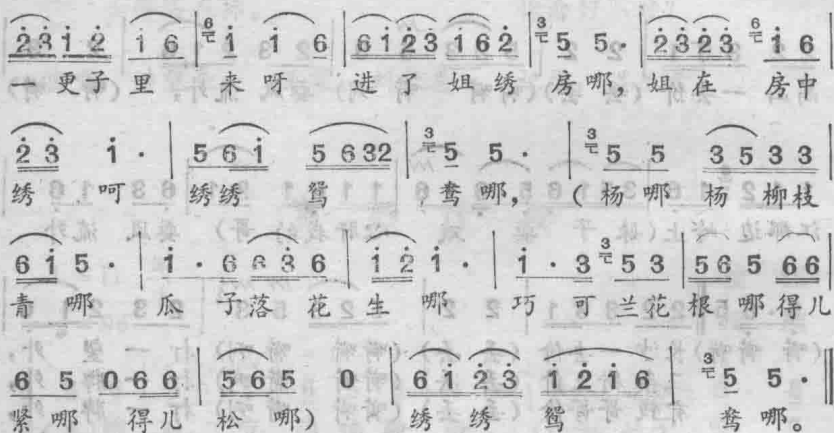 2 3 1 2 | 1 6 | 6 1 1 6 | 6 1 2 3 1 6 2 | 3 5 5· | 2 3 2 3 6 1 6 |
一更子里 来呀 进了姐绣 房哪,姐在 房中
2 3 1· | 5 6 1 5 6 3 2 | 3 5 5· | 3 5 5 3 5 3 3 |
绣 呵 绣绣 鸳 鸯哪, (杨哪 杨柳枝
6 1 5· | 1· 6 6 3 6 | 1 2 1· | 1· 3 3 5 3 | 5 6 5 6 6 |
青 哪 瓜 子落花 生 哪 巧可兰花 根哪得儿
6 5 0 6 6 | 5 6 5 0 | 6 1 2 3 1 2 1 6 | 3 5 5· ‖
紧哪 得儿 松哪) 绣绣 鸳 鸯哪。